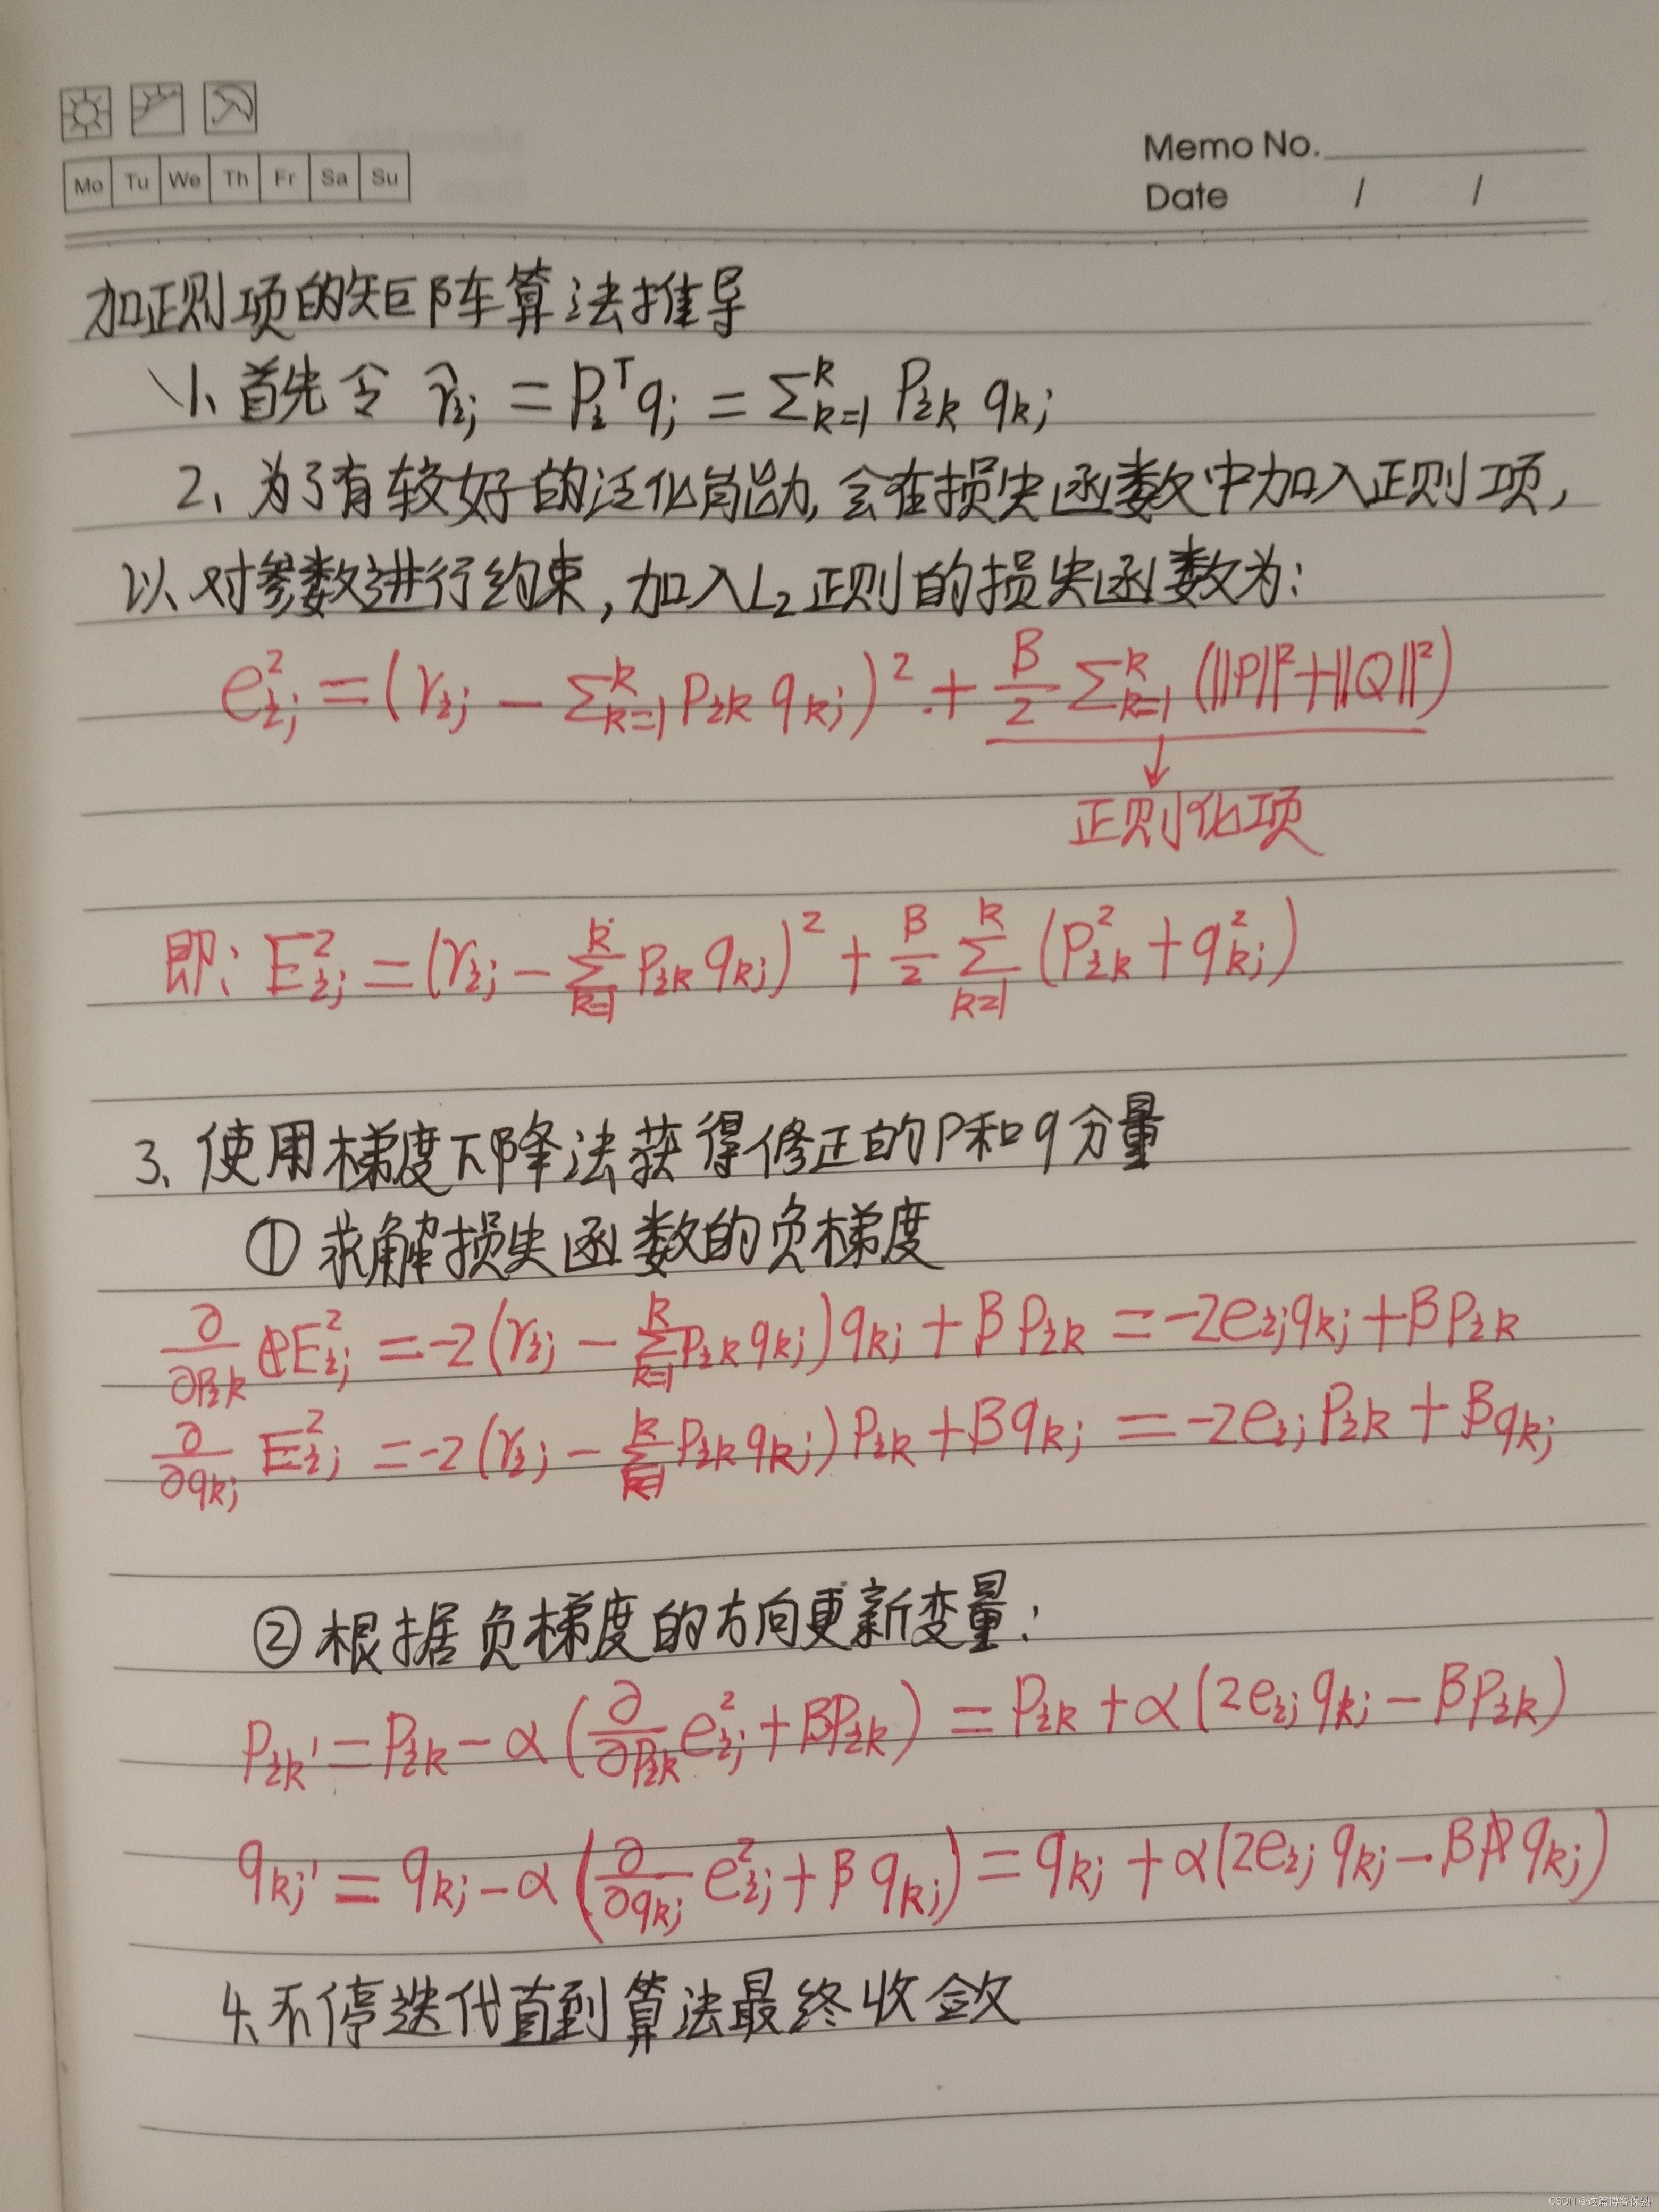 Mo Tu We Th Fr Sa Su
Memo No.
Date / /
加正则项的矩阵算法推导
1、首先令 r̂ij = Pi^T qj = Σ_{k=1}^{k} Pik qkj
2、为了有较好的泛化能力,会在损失函数中加入正则项,
以对参数进行约束,加入L2正则的损失函数为:
e²ij = (rij - Σ_{k=1}^{k} Pik qkj)² + β/2 Σ_{k=1}^{k} (||P||²+||Q||²)
正则化项
即: E²ij = (rij - Σ_{k=1}^{k} Pik qkj)² + β/2 Σ_{k=1}^{k} (P²ik + q²kj)
3、使用梯度下降法获得修正的P和q分量
① 求解损失函数的负梯度
∂/∂Pik E²ij = -2(rij - Σ_{k=1}^{k} Pik qkj) qkj + β Pik = -2eij qkj + β Pik
∂/∂qkj E²ij = -2(rij - Σ_{k=1}^{k} Pik qkj) Pik + β qkj = -2eij Pik + β qkj
② 根据负梯度的方向更新变量:
Pik' = Pik - α(∂/∂Pik e²ij + βPik) = Pik + α(2eij qkj - βPik)
qkj' = qkj - α(∂/∂qkj e²ij + β qkj) = qkj + α(2eij qkj - β qkj)
4、不停迭代直到算法最终收敛
CSDN @这篇博客保熟